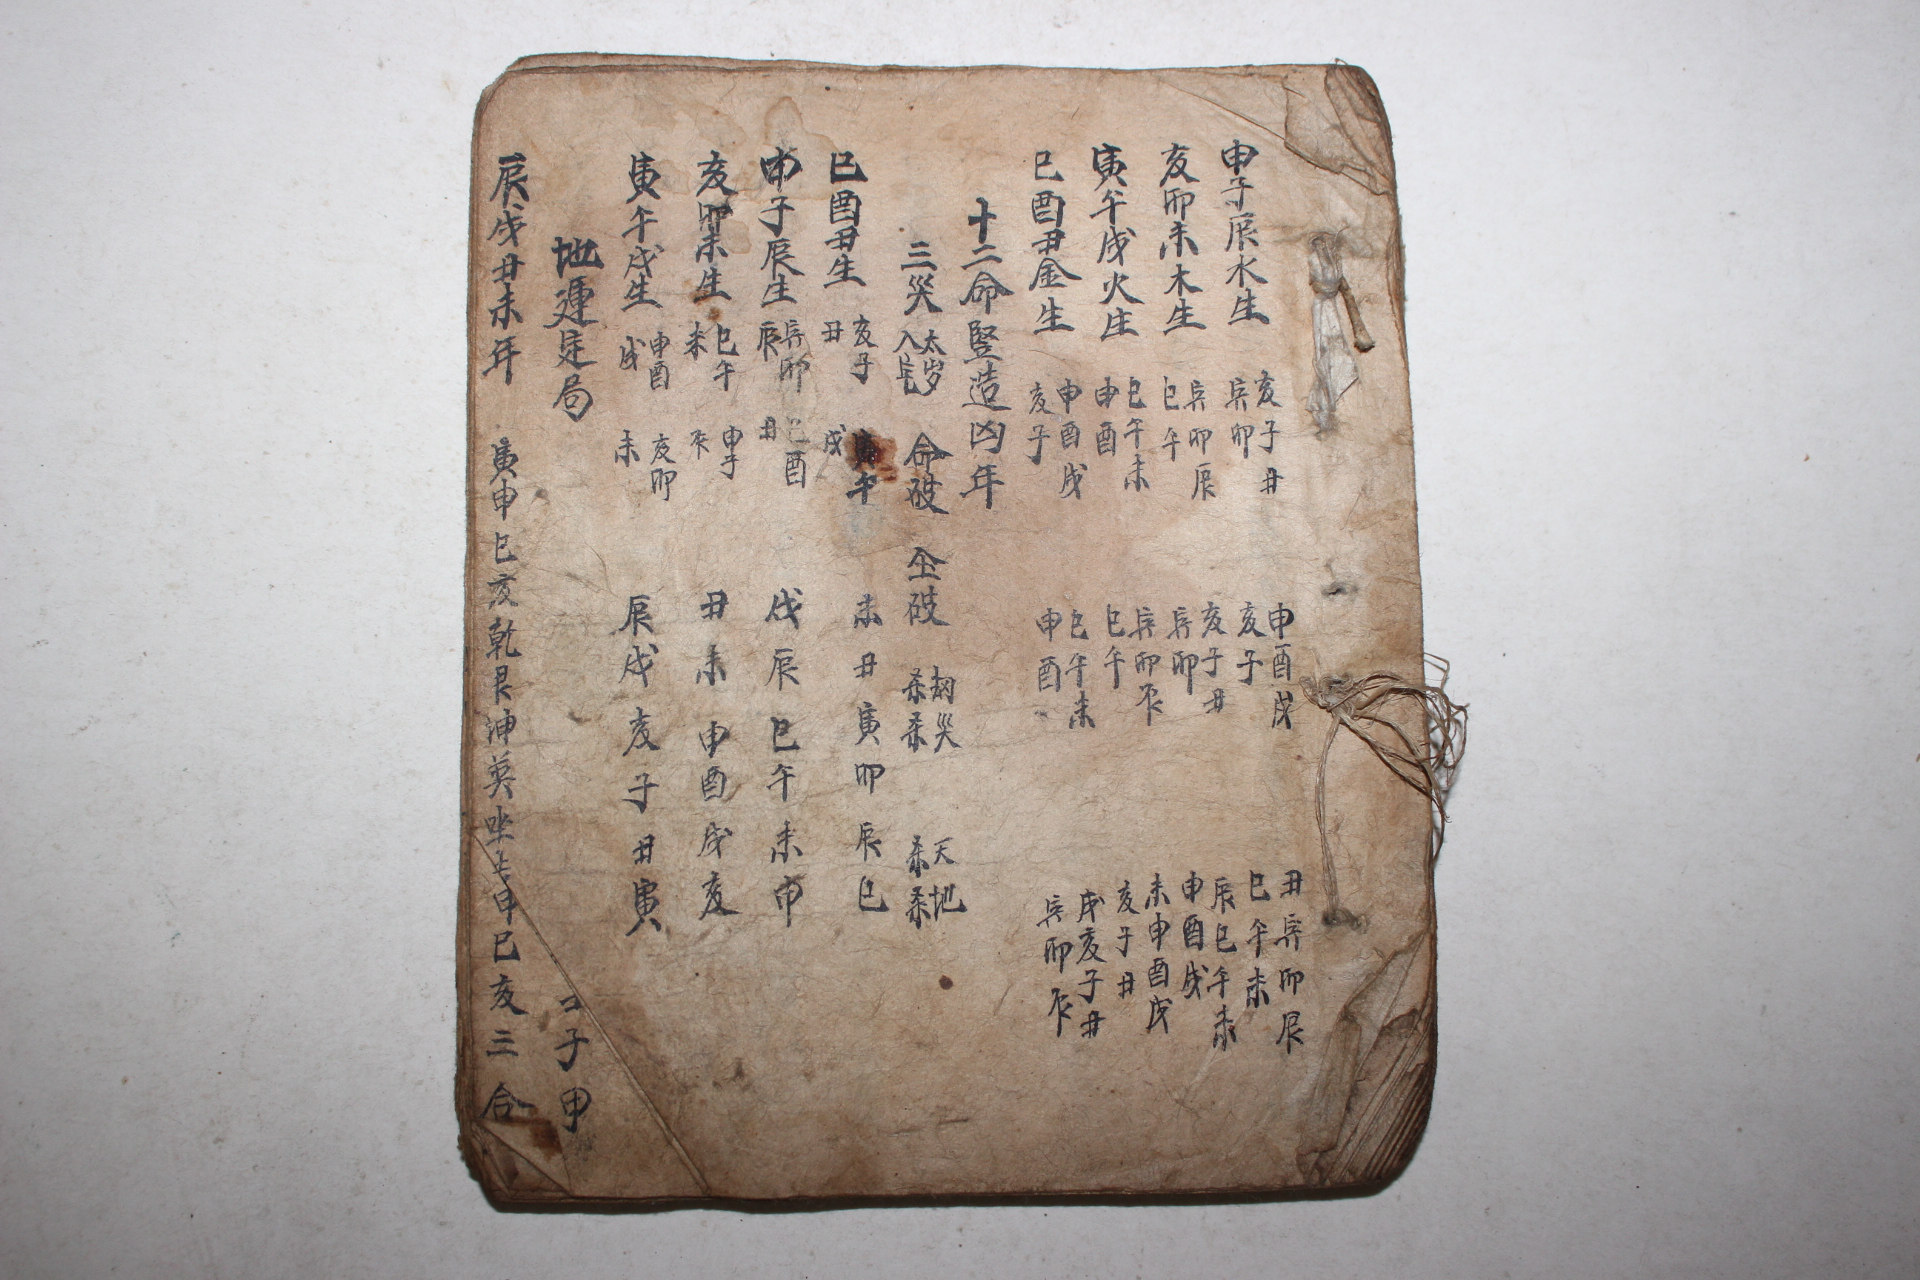 申子辰水生 亥子丑 寅卯 申酉戌 亥子 丑寅卯辰 巳午未
亥卯未木生 寅卯辰 巳午 亥子丑 寅卯 辰巳午未 申酉戌
寅午戌火生 巳午未 申酉 寅卯辰 巳午 未申酉戌 亥子丑
巳酉丑金生 申酉戌 亥子 巳午未 申酉 戌亥子丑 寅卯辰
十二命竪造凶年
三災 太岁入 命破 仝破 刼災杀杀 天地杀杀
巳酉丑生 亥子丑 寅午戌 未丑寅卯辰巳
申子辰生 寅卯辰 巳酉丑 戌辰巳午未申
亥卯未生 巳午未 申子辰 丑未申酉戌亥
寅午戌生 申酉戌 亥卯未 辰戌亥子丑寅
地運定局 子甲
辰戌丑未年 寅申巳亥乾艮坤巽坐 申巳亥三合